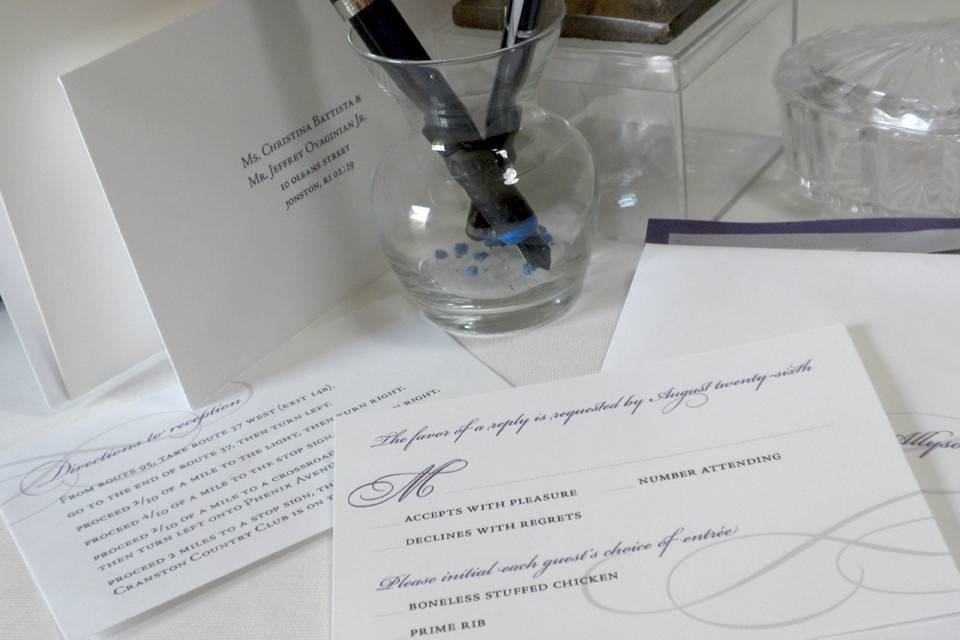 Ms. Christina Battista &
Mr. Jeffrey Ovaginian Jr.
10 Oleans Street
Jonston, RI 02719
Directions to reception
From route 95, take route 37 west (exit 14B).
go to the end of route 37, then turn left.
proceed 2/10 of a mile to the light, then turn right.
proceed 4/10 of a mile to the stop sign, right.
proceed 2/10 of a mile to a crossroad
then turn left onto Phenix Avenue
proceed 2 miles to a stop sign, the
Cranston Country Club is on
The favor of a reply is requested by August twenty-sixth
M
number attending
accepts with pleasure
declines with regrets
Please initial each guest's choice of entrée
boneless stuffed chicken
prime rib